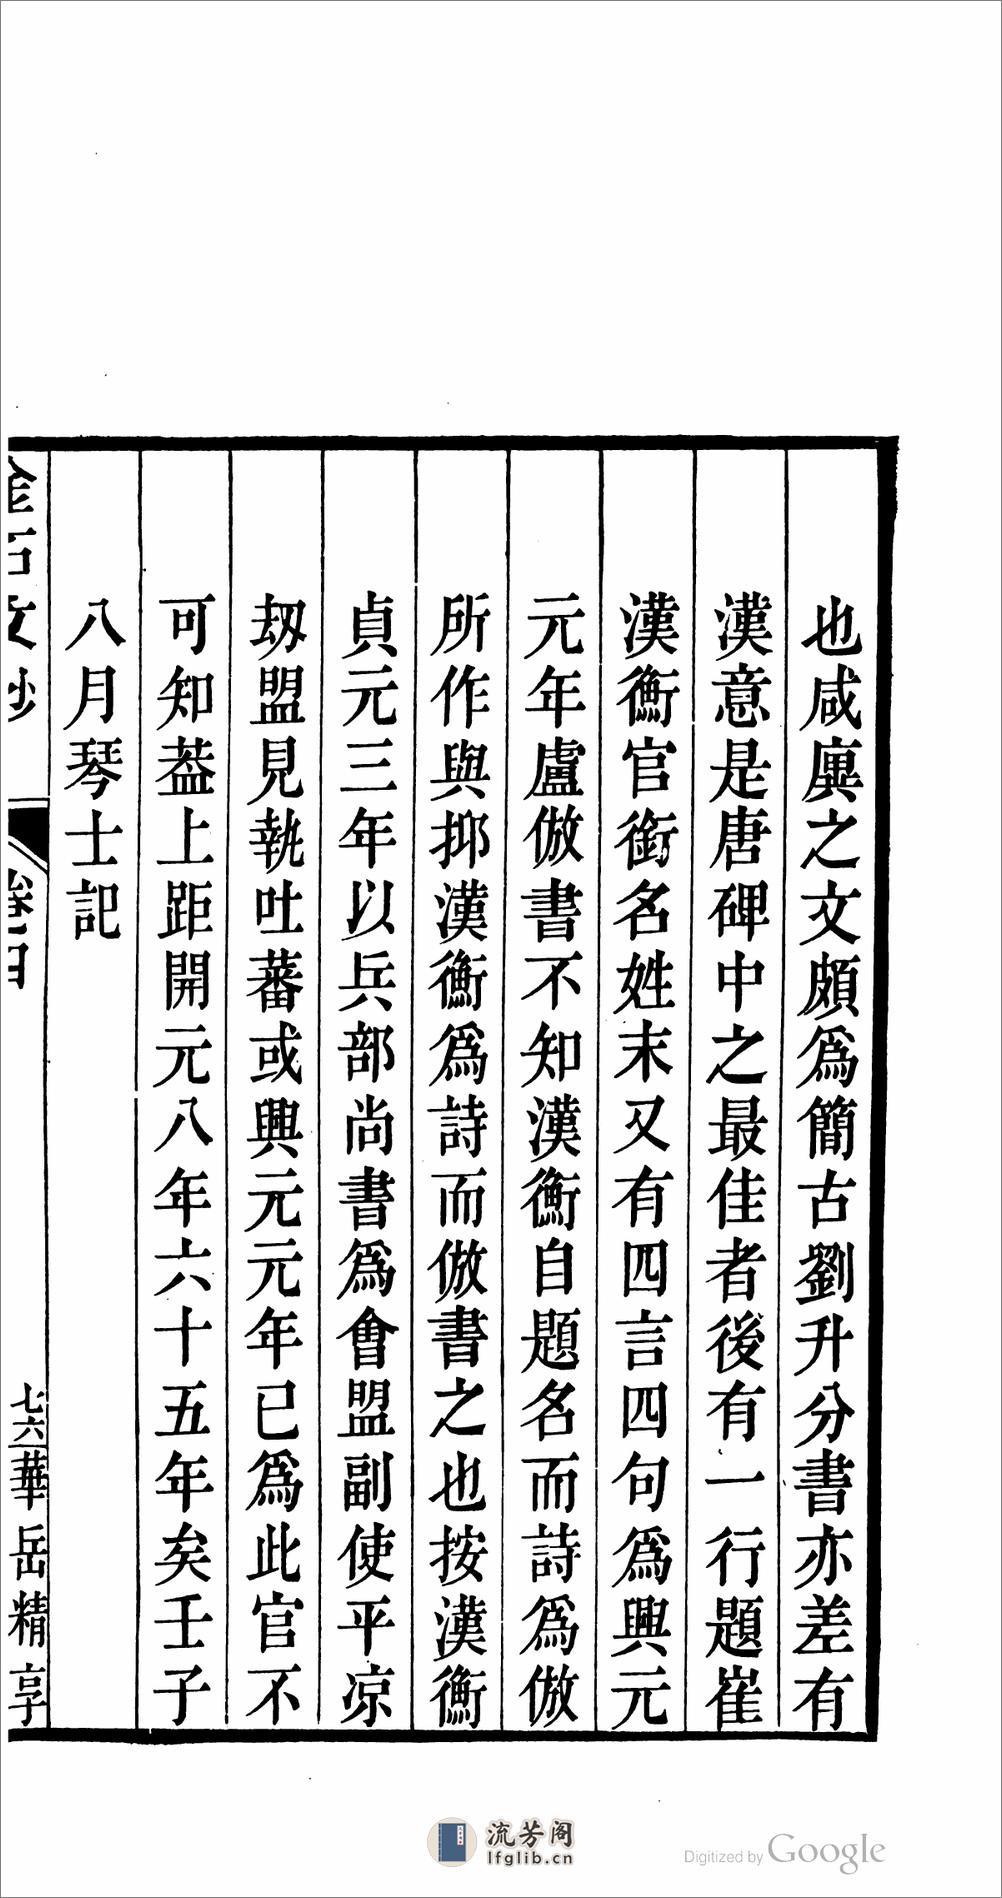 也咸廙之文頗爲簡古劉升分書亦差有
漢意是唐碑中之最佳者後有一行題崔
漢衡官銜名姓末又有四言四句爲興元
元年盧倣書不知漢衡自題名而詩爲倣
所作與抑漢衡爲詩而倣書之也按漢衡
貞元三年以兵部尚書爲會盟副使平凉
刼盟見執吐蕃或興元元年已爲此官不
可知葢上距開元八年六十五年矣壬子
八月琴士記
金石文鈔
卷四
七六
華岳精享
流芳阁
lfglib.cn
Digitized by Google